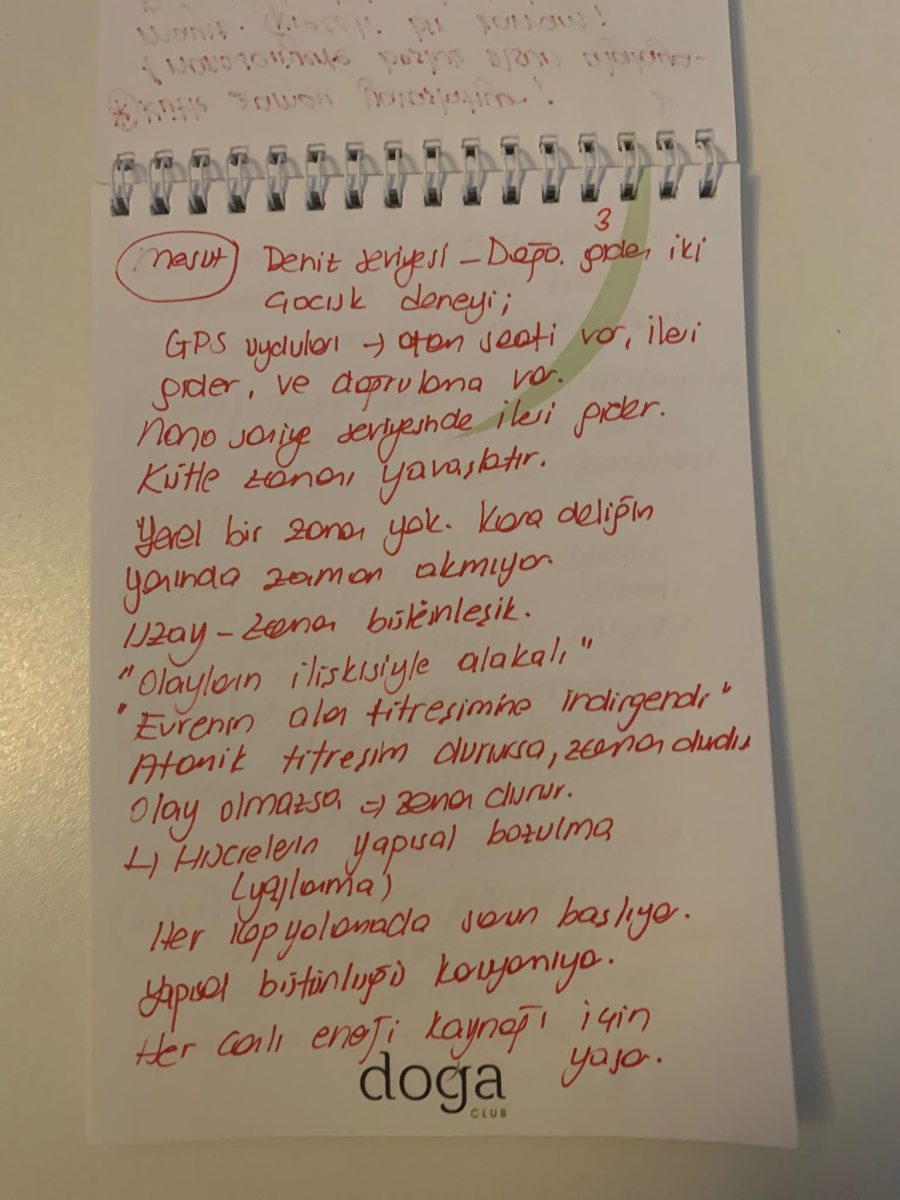 3
mesut Deniz seviyesi - Dağa giden iki
çocuk deneyi;
GPS uyduları → atom saati var, ileri
gider, ve doğrulama var.
Nano saniye seviyesinde ileri gider.
Kütle zamanı yavaşlatır.
Yerel bir zaman yok. Kara deliğin
yanında zaman akmıyor.
Uzay - zaman bütünleşik.
"Olayların ilişkisiyle alakalı"
"Evrenin alan titreşimine indirgendi"
Atomik titreşim durursa, zaman durdu
Olay olmazsa ⇒ zaman durur.
↳ Hücrelerin yapısal bozulma
(yaşlanma)
Her kopyalamada sorun başlıyor.
Yapısal bütünlüğü koruyamıyor.
Her canlı enerji kaynağı için
yaşar.
doğa
CLUB